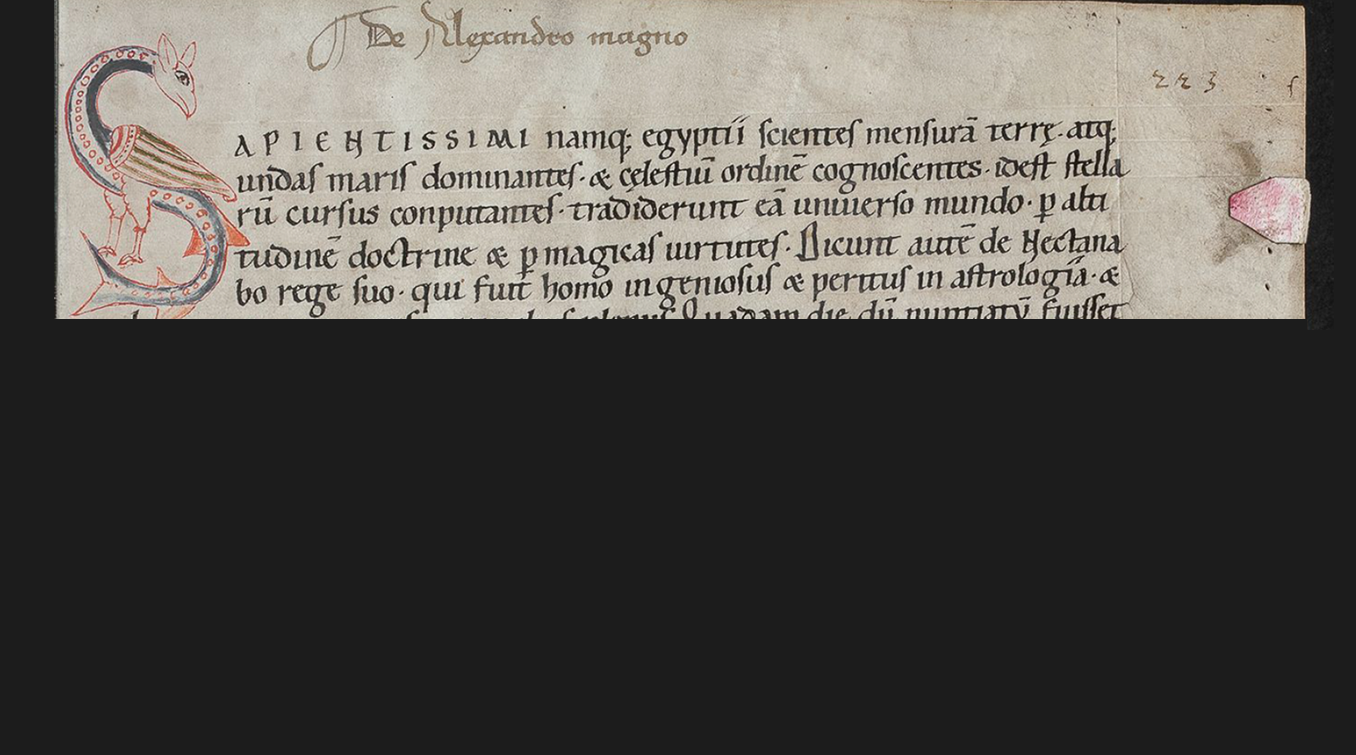 De Alexandro magno
223
SAPIENTISSIMI namq; egyptii scientes mensurā terrę· atq;
undas maris dominantes· & cęlestiū ordinē cognoscentes· idest stella
rū cursus conputantes· tradiderunt eā uniuerso mundo· p alti
tudinē doctrine & p magicas uirtutes· Dicunt autē de Nectana
bo rege suo· qui fuit homo ingeniosus & peritus in astrologia· &
Quadam die dū nuntiatū fuisset